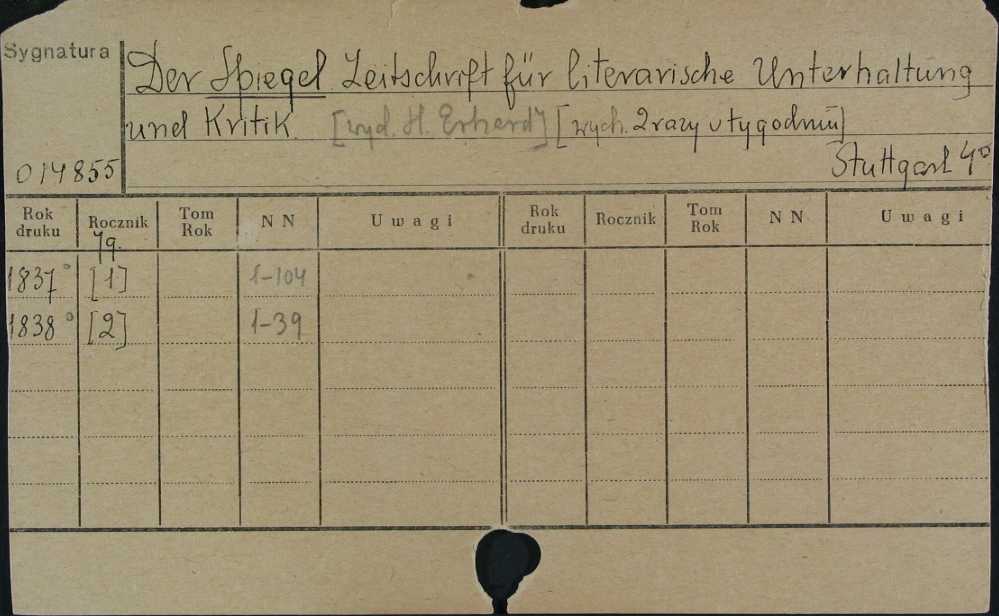 Sygnatura
Der Spiegel Zeitschrift für literarische Unterhaltung
und Kritik. [wyd. H. Erhard] [wych. 2 razy w tygodniu]
014855
Stuttgart 4°
Rok druku Rocznik Tom Rok NN Uwagi Rok druku Rocznik Tom Rok NN Uwagi
Jg.
1837° [1] 1-104
1838° [2] 1-39